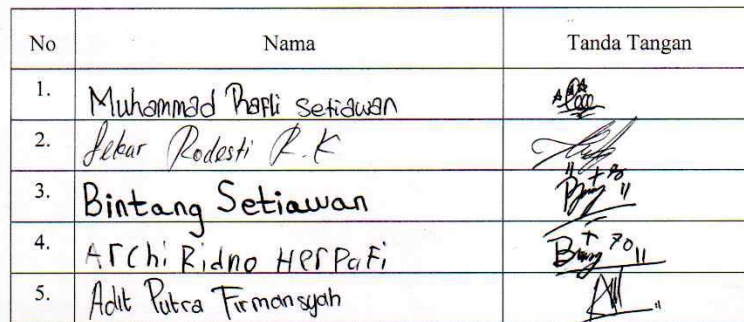 No Nama Tanda Tangan
1. Muhammad Rafli Setiawan
2. Sekar Rodesti R.K
3. Bintang Setiawan
4. Archi Ridho Herpafi
5. Adit Putra Firmansyah